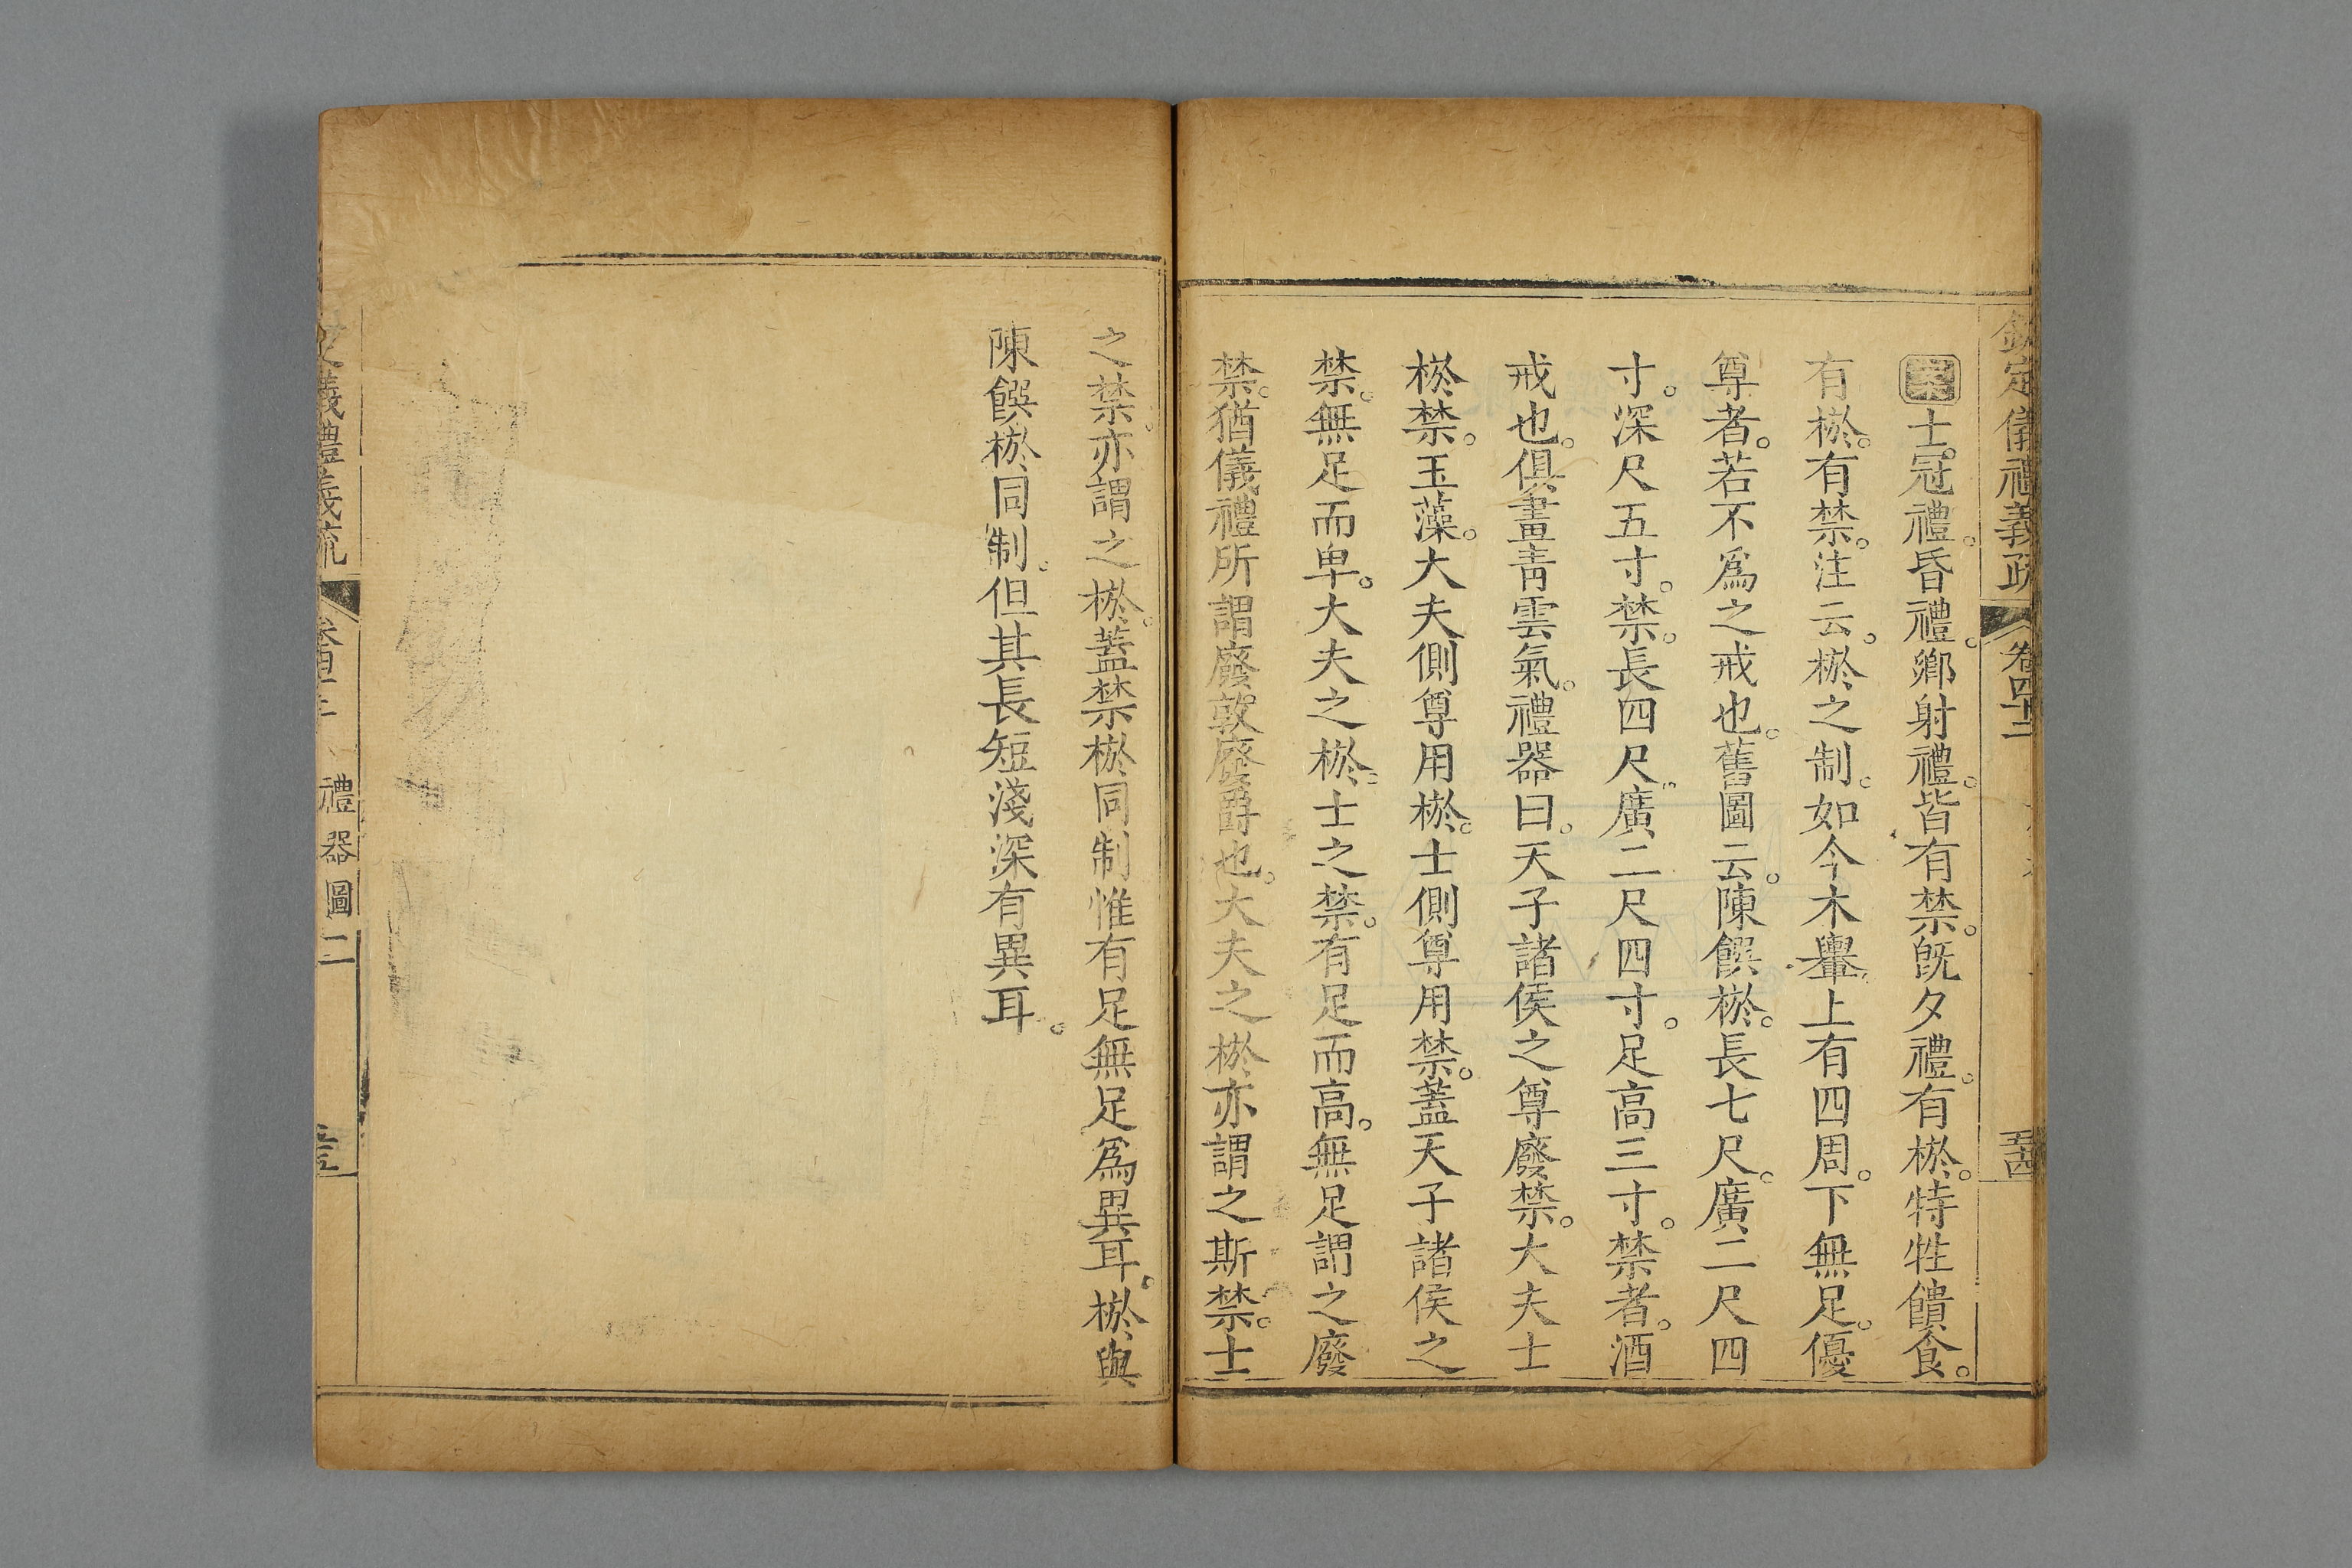 欽定儀禮義疏 卷四十二 五四
案士冠禮。昏禮。鄉射禮。皆有禁。旣夕禮。有棜。特牲饋食。
有棜。有禁。注云。棜之制。如今木轝。上有四周。下無足。優
尊者。若不爲之戒也。舊圖云。陳饌棜。長七尺。廣二尺四
寸。深尺五寸。禁。長四尺。廣二尺四寸。足高三寸。禁者。酒
戒也。俱畫靑雲氣。禮器曰。天子諸侯之尊廢禁。大夫士
棜禁。玉藻。大夫側尊用棜。士側尊用禁。蓋天子諸侯之
禁。無足而卑。大夫之棜。士之禁。有足而高。無足謂之廢
禁。猶儀禮所謂廢敦廢爵也。大夫之棜亦謂之斯禁。士
之禁。亦謂之棜。蓋禁棜同制惟有足無足爲異耳。棜與
陳饌棜同制。但其長短淺深有異耳。
儀禮義疏 禮器圖二